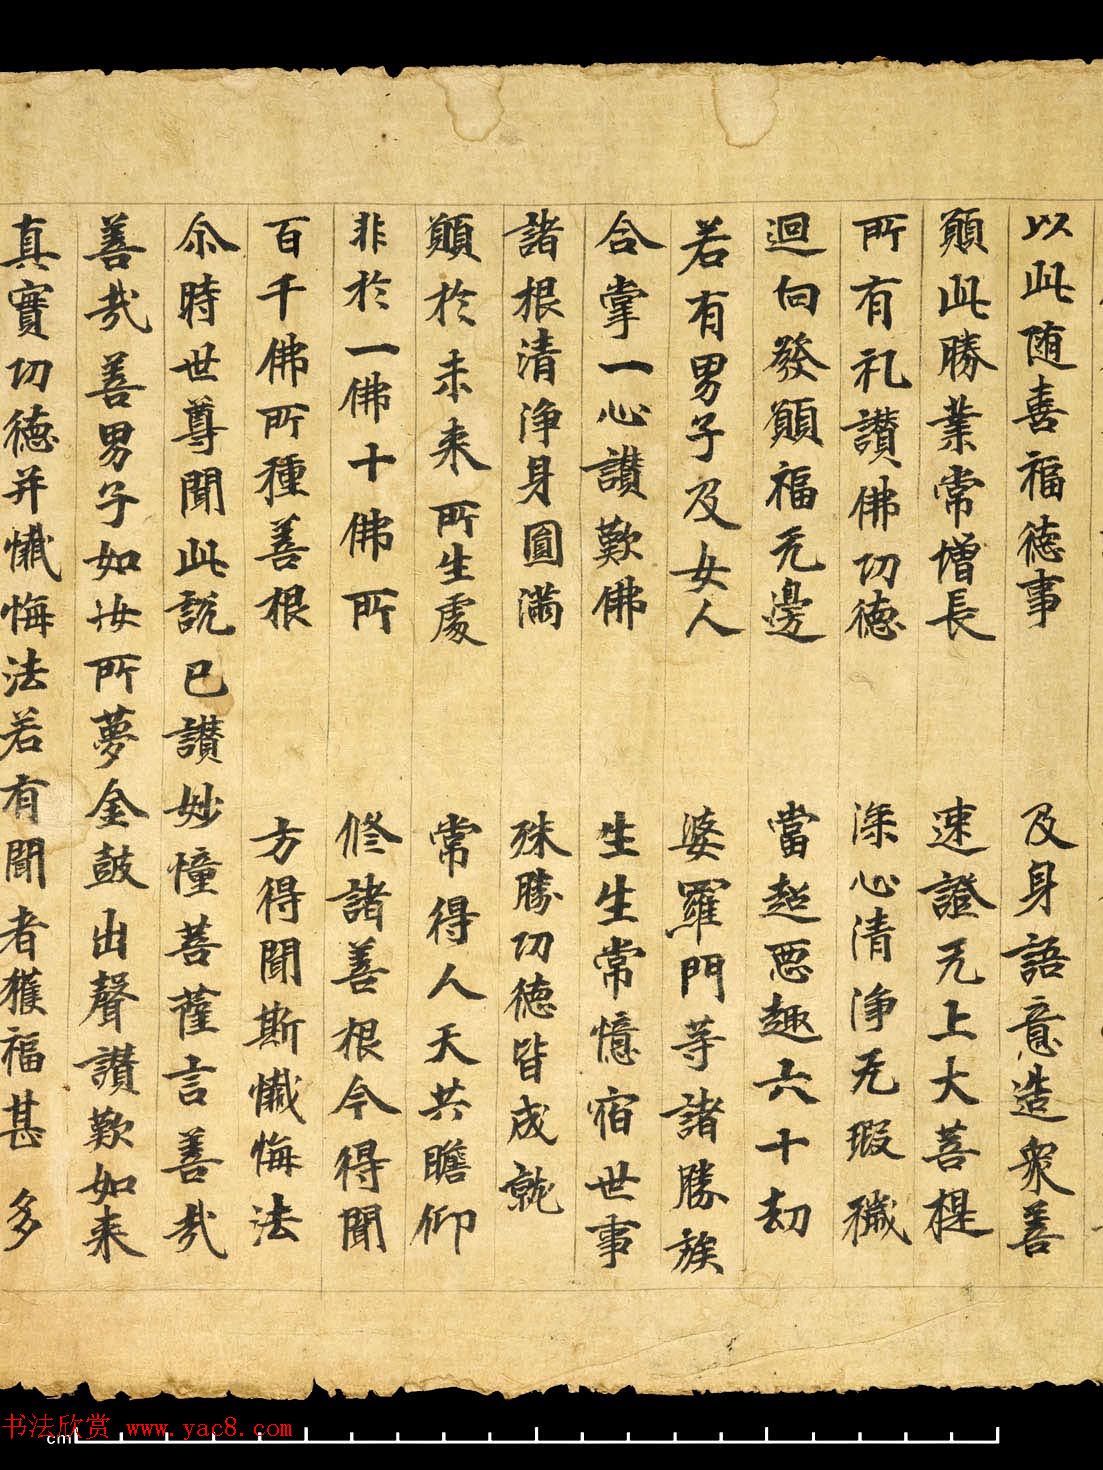 以此随喜福德事 及身語意造衆善
願此勝業常增長 速證无上大菩提
所有礼讃佛功德 深心清淨无瑕穢
迴向發願福无邊 當超惡趣六十劫
若有男子及女人 婆羅門等諸勝族
合掌一心讃歎佛 生生常憶宿世事
諸根清淨身圓滿 殊勝功德皆成就
願於未来所生處 常得人天共瞻仰
非於一佛十佛所 修諸善根今得聞
百千佛所種善根 方得聞斯懺悔法
尒時世尊聞此說已讃妙幢菩薩言善哉
善哉善男子如汝所夢金鼓出聲讃歎如来
真實功德并懺悔法若有聞者獲福甚多
书法欣赏 www.yac8.com
cm